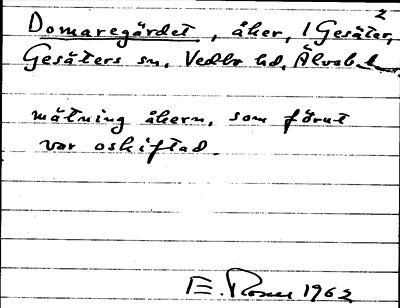 2
Domaregärdet, åker, 1 Gesäter,
Gesäters sn, Vedbo hd, Älvsb. l.
mätning åkern, som förut
var oskiftad.
E. Rosell 1962